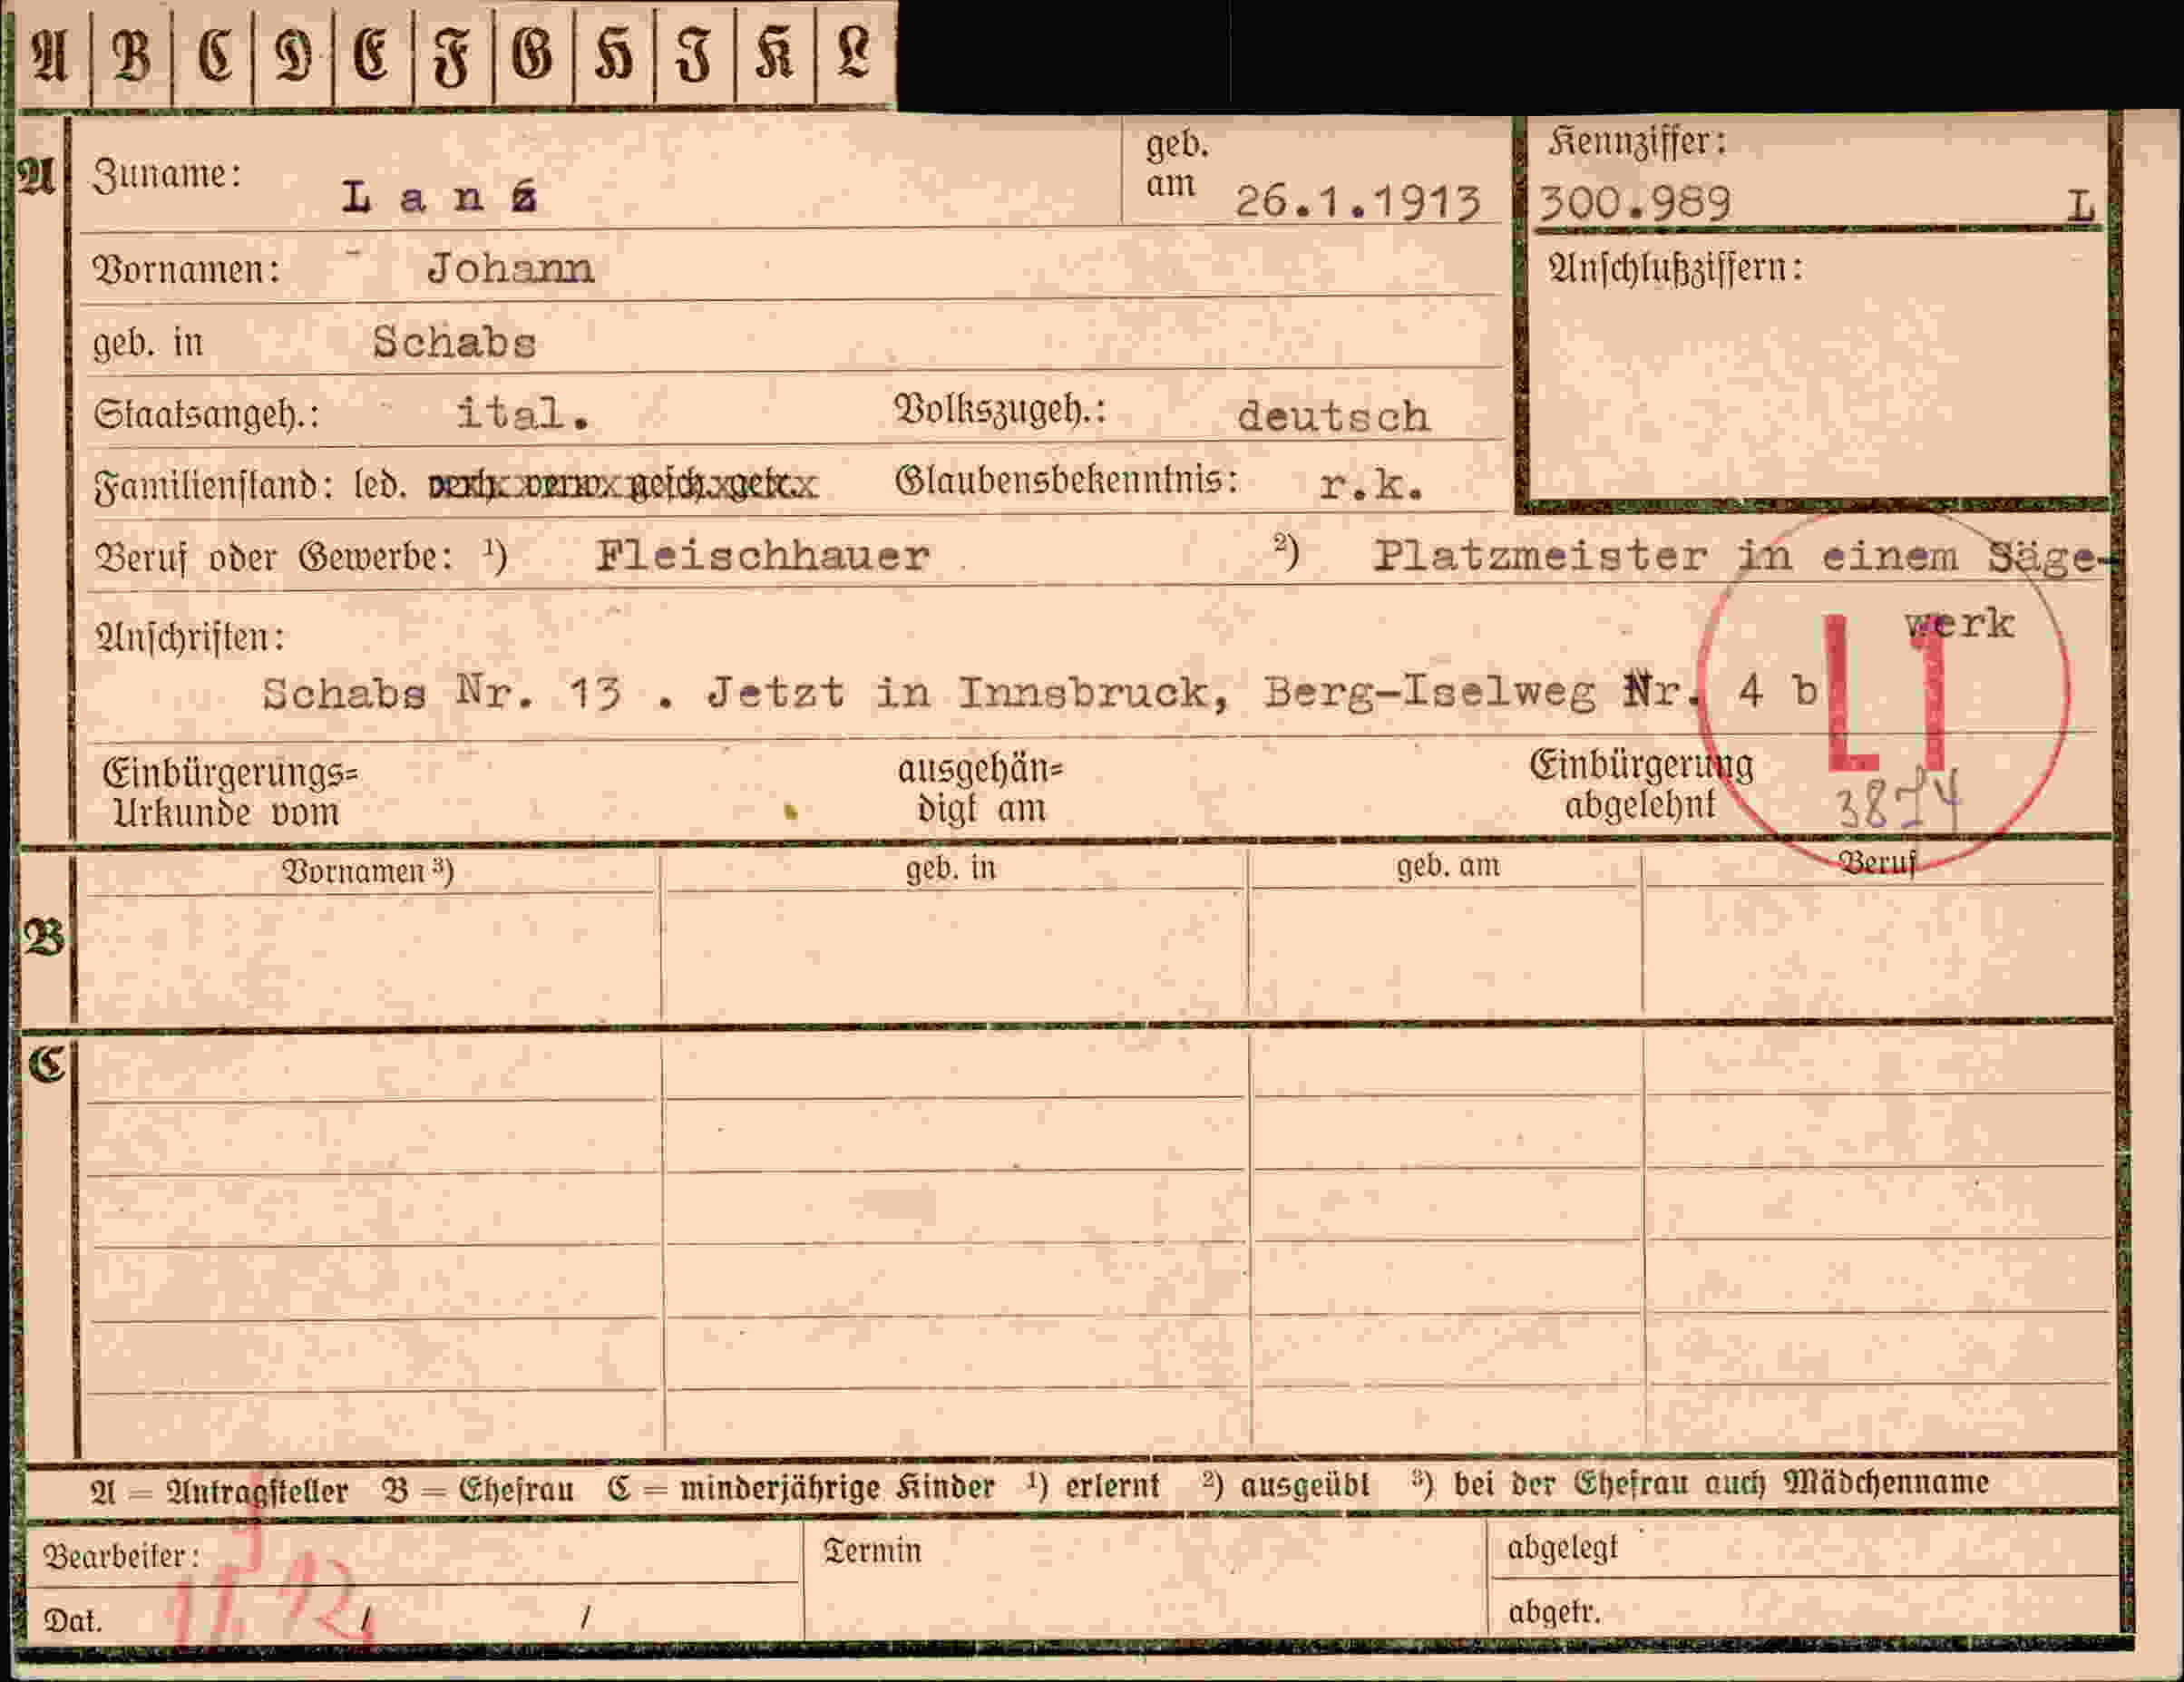 A B C D E F G H I K L
A Zuname: Lanz geb. am 26.1.1913 Kennziffer: 300.989 L
Vornamen: Johann Anschlußziffern:
geb. in Schabs
Staatsangeh.: ital. Volkszugeh.: deutsch
Familienstand: led. verh. verw. gesch. getr. Glaubensbekenntnis: r.k.
Beruf oder Gewerbe: ¹) Fleischhauer ²) Platzmeister in einem Säge-
werk
Anschriften:
Schabs Nr. 13 . Jetzt in Innsbruck, Berg-Iselweg Nr. 4 b
L1
Einbürgerungs= ausgehän= Einbürgerung
Urkunde vom digt am abgelehnt
3874
Vornamen ³) geb. in geb. am Beruf
B
C
A = Antragsteller B = Ehefrau C = minderjährige Kinder ¹) erlernt ²) ausgeübt ³) bei der Ehefrau auch Mädchenname
Bearbeiter: Termin abgelegt
Dat. / / abgetr.